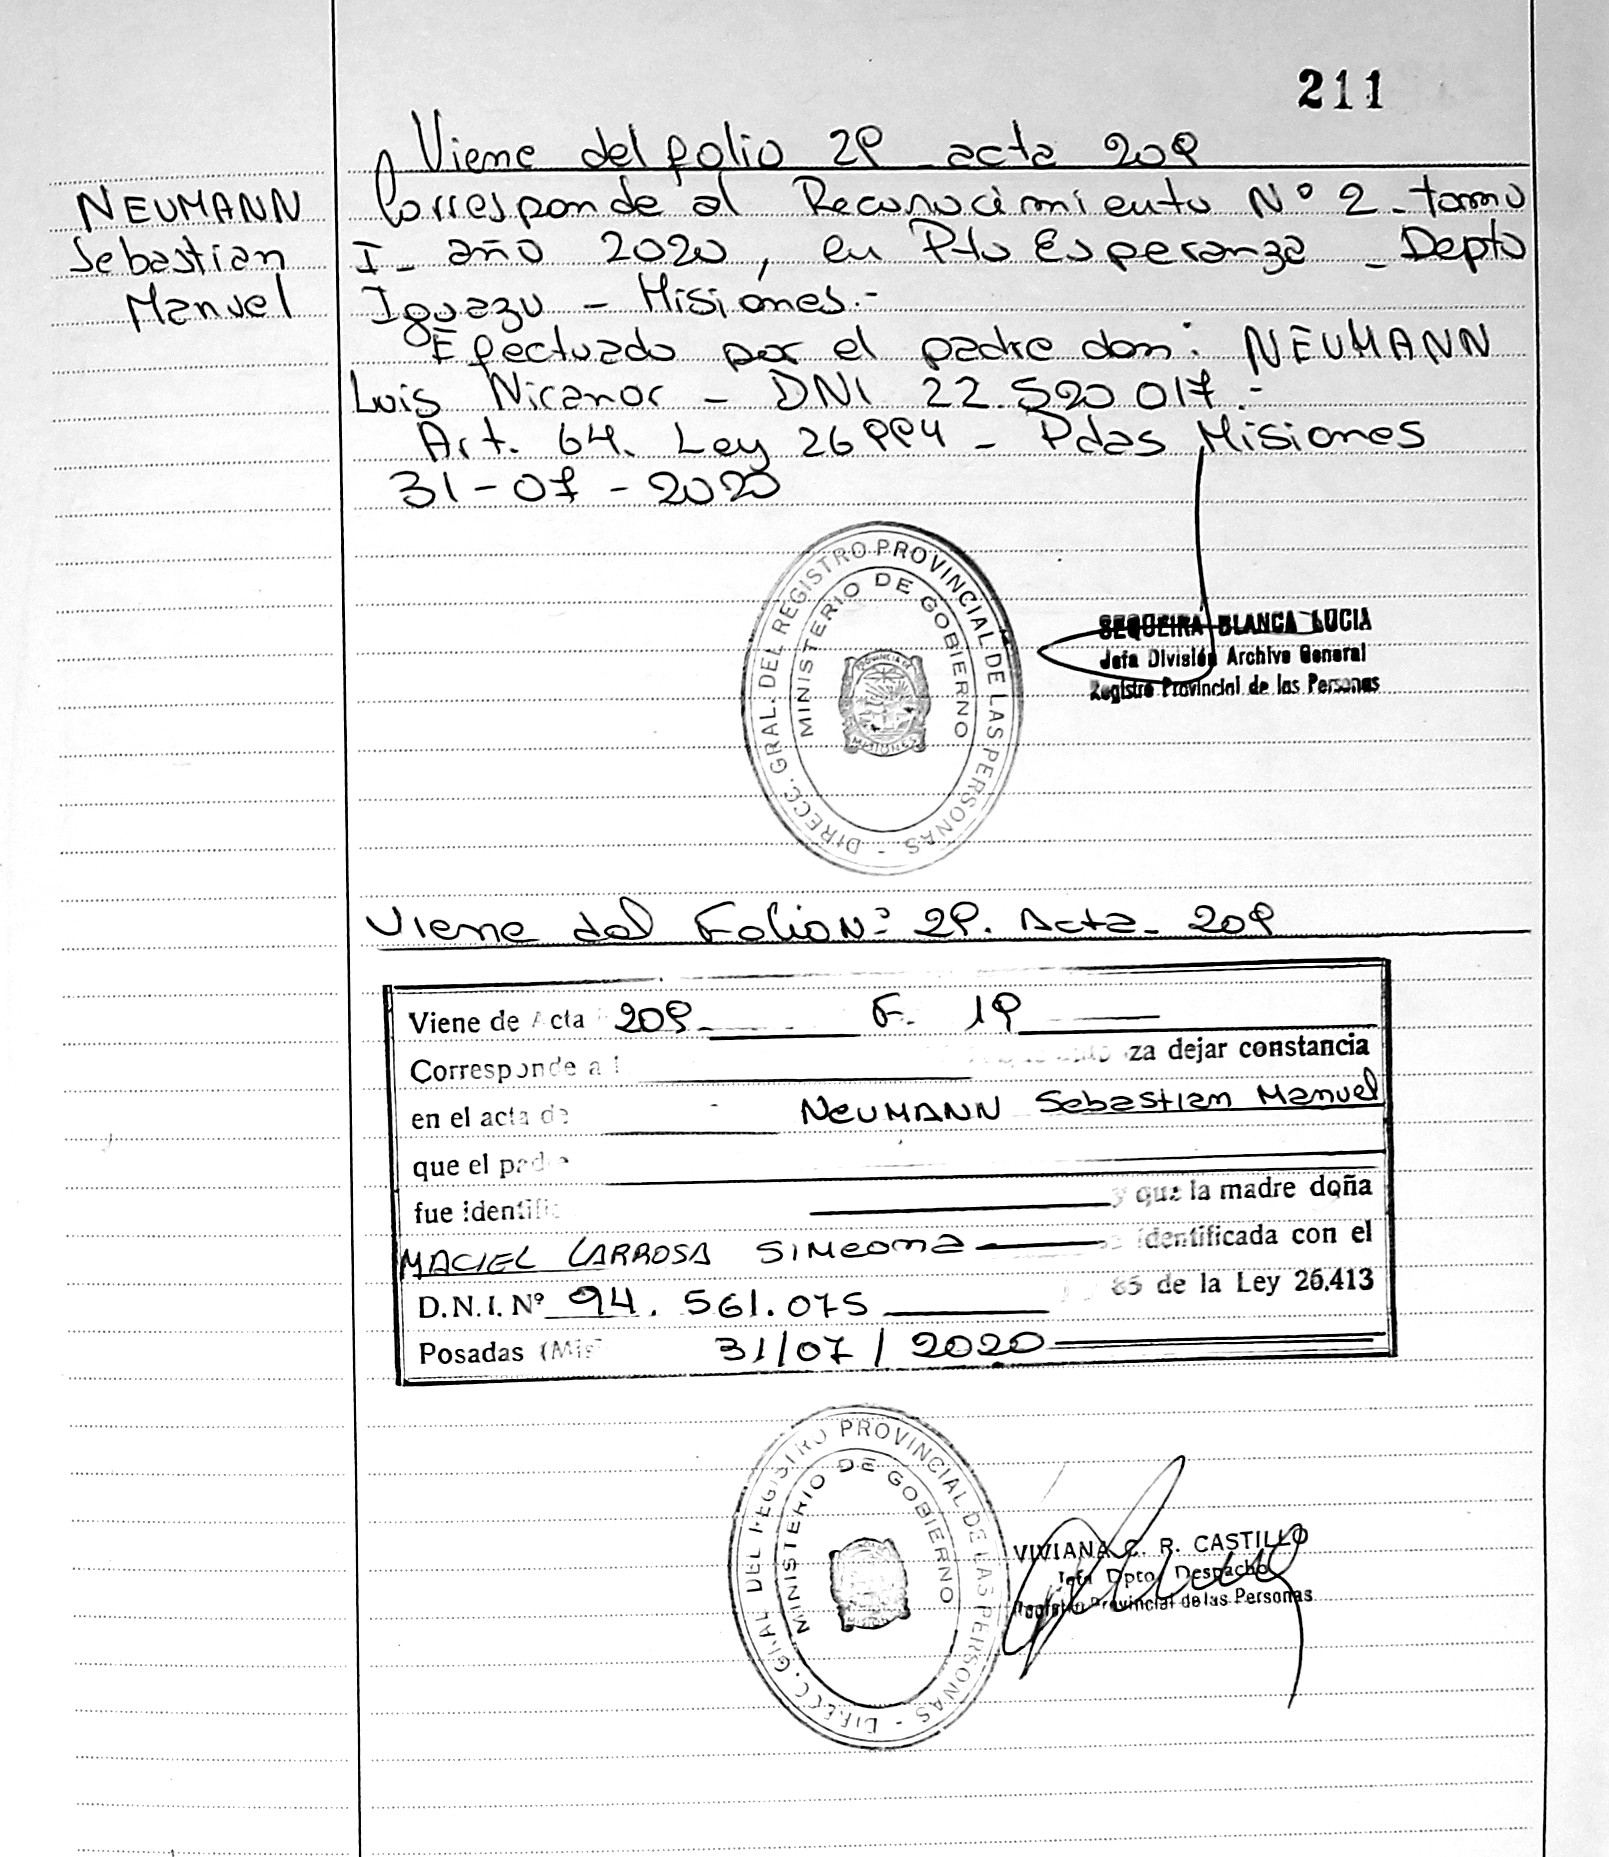 211
Viene del folio 29 acta 209
NEUMANN
Sebastian
Manuel
Corresponde al Reconocimiento Nº 2 - tomo
I - año 2020, en Pto Esperanza - Depto
Iguazu - Misiones.-
Efectuado por el padre don: NEUMANN
Luis Nicanor - DNI 22.520.017.-
Art. 64. Ley 26994 - Pdas Misiones
31-07-2020
DIRECC. GRAL. DEL REGISTRO PROVINCIAL DE LAS PERSONAS -
MINISTERIO DE GOBIERNO
PROVINCIA DE
MISIONES
SEQUEIRA BLANCA LUCIA
Jefa División Archivo General
Registro Provincial de las Personas
Viene del Folio Nº 29. Acta - 209
Viene de Acta 209 F. 19
Corresponde a dejar constancia
en el acta de NEUMANN Sebastian Manuel
que el padre
fue identifi y que la madre doña
MACIEL LARROSA SIMEONA identificada con el
D.N.I. Nº 94.561.075 85 de la Ley 26.413
Posadas (Mis 31/07/2020
DIRECC. GRAL. DEL REGISTRO PROVINCIAL DE LAS PERSONAS -
MINISTERIO DE GOBIERNO
VIVIANA C. R. CASTILLO
Jefa Dpto. Despacho
Registro Provincial de las Personas